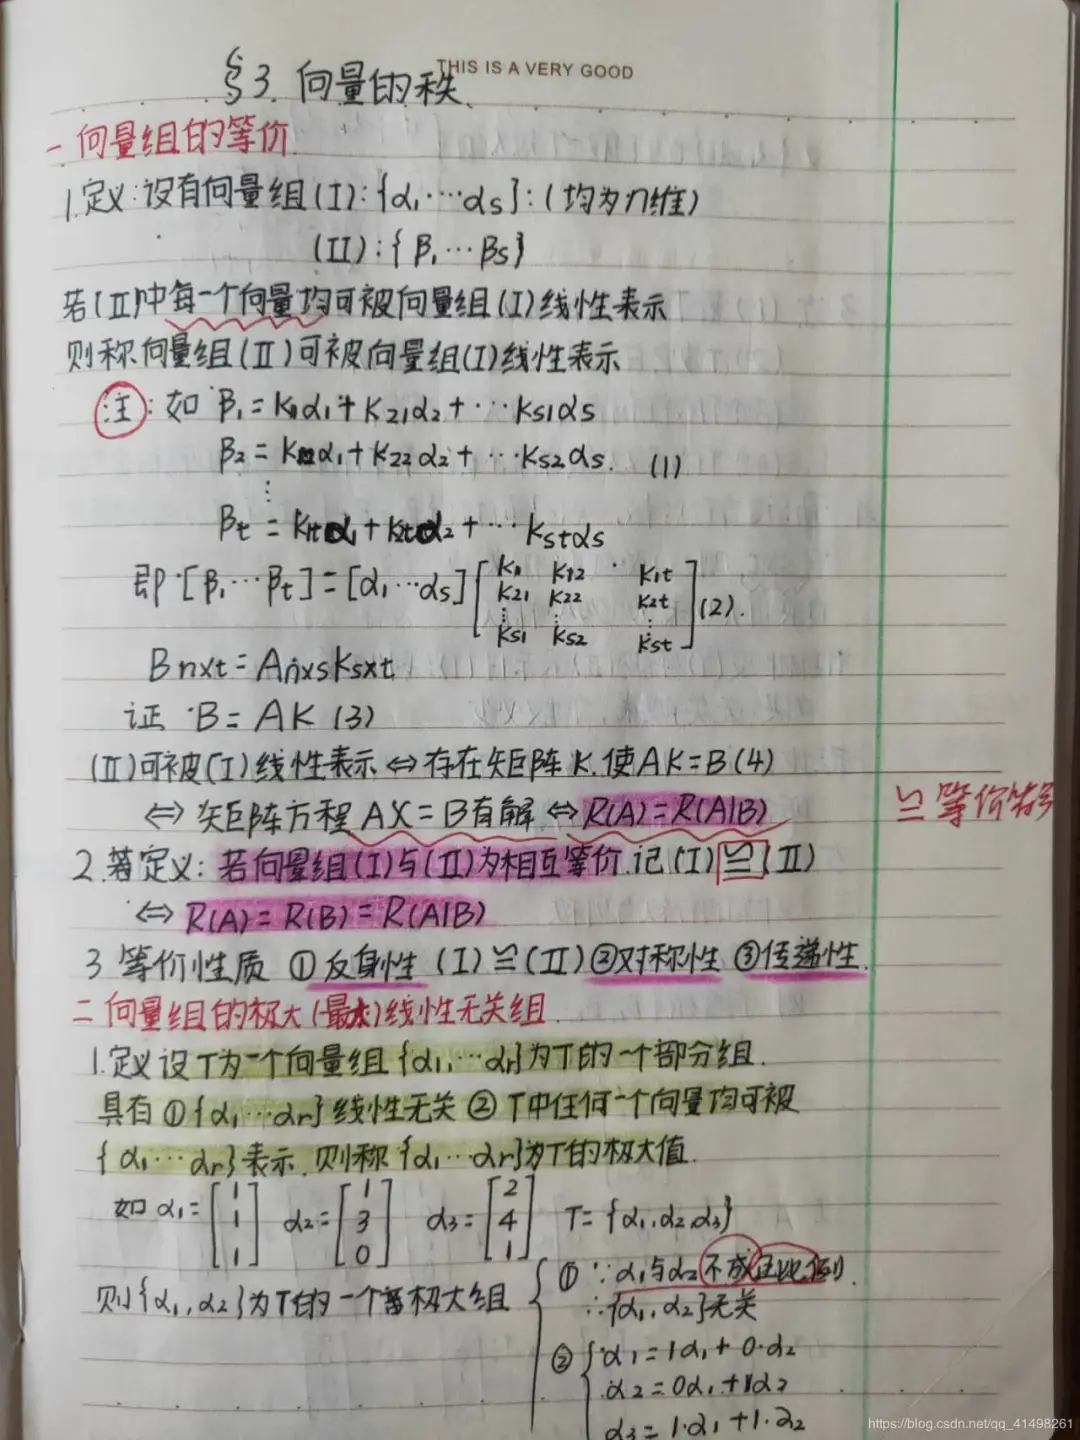 THIS IS A VERY GOOD
§3. 向量的秩.
一 向量组的等价
1.定义:设有向量组(I):{α₁⋯αs}:(均为n维)
(II):{β₁⋯βs}
若(II)中每一个向量均可被向量组(I)线性表示
则称向量组(II)可被向量组(I)线性表示
注:如 β₁=K₁₁α₁+K₂₁α₂+⋯Ks₁αs
β₂=K₁₂α₁+K₂₂α₂+⋯Ks₂αs. (1)
⋮
βt=K₁tα₁+K₂tα₂+⋯Kstαs
即[β₁⋯βt]=[α₁⋯αs][K₁₁ K₁₂ ⋯ K₁t
K₂₁ K₂₂ K₂t
⋮ ⋮ ⋮
Ks₁ Ks₂ Kst](2).
Bn×t=An×sKs×t
证 B=AK (3)
(II)可被(I)线性表示⇔存在矩阵K.使AK=B(4)
⇔矩阵方程AX=B有解⇔R(A)=R(A|B)
≌等价符号
2.若定义:若向量组(I)与(II)为相互等价.记(I)≌(II)
⇔ R(A)=R(B)=R(A|B)
3 等价性质 ①反身性 (I)≌(II) ②对称性 ③传递性.
二 向量组的极大(最大)线性无关组.
1.定义设T为一个向量组{α₁,⋯αr}为T的一个部分组.
具有①{α₁⋯αr}线性无关②T中任何一个向量均可被
{α₁⋯αr}表示.则称{α₁⋯αr}为T的极大值.
如 α₁=[1 1 1] α₂=[1 3 0] α₃=[2 4 1] T={α₁,α₂,α₃}
则{α₁,α₂}为T的一个极大组
①∵α₁与α₂不成正比例.
∴{α₁,α₂}无关
②{α₁=1α₁+0·α₂
α₂=0α₁+1α₂
α₃=1·α₁+1·α₂
https://blog.csdn.net/qq_41498261